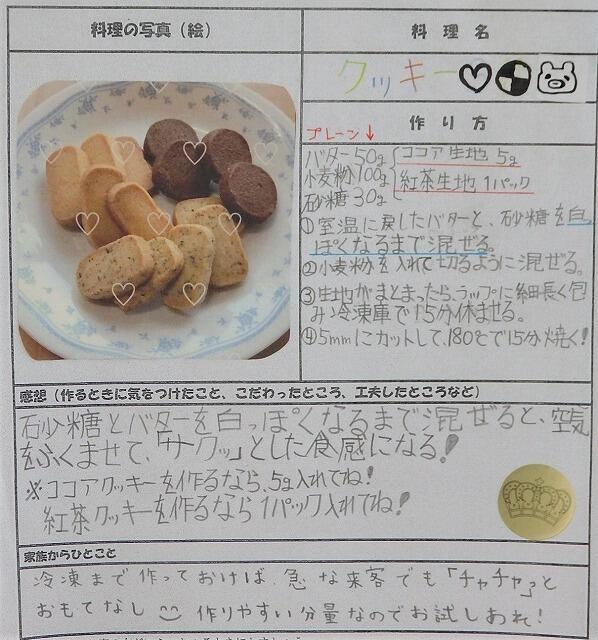 料理の写真（絵）
料理名
クッキー
作り方
プレーン↓
バター50g
小麦粉100g
砂糖 30g
ココア生地 5g
紅茶生地 1パック
①室温に戻したバターと、砂糖を白っ
ぽくなるまで混ぜる。
②小麦粉を入れて切るように混ぜる。
③生地がまとまったら、ラップに細長く包
み冷凍庫で15分休ませる。
④5mmにカットして、180℃で15分焼く!
感想（作るときに気をつけたこと、こだわったところ、工夫したところなど）
砂糖とバターを白っぽくなるまで混ぜると、空気
をふくませて、「サクッ」とした食感になる!
※ココアクッキーを作るなら、5g入れてね!
紅茶クッキーを作るなら1パック入れてね!
家族からひとこと
冷凍まで作っておけば、急な来客でも「チャチャ」と
おもてなし 作りやすい分量なのでお試しあれ!